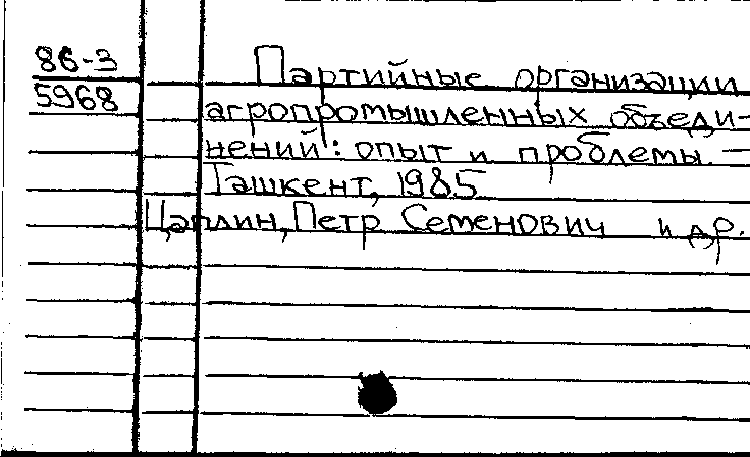 86-3
5968
Партийные организации
агропромышленных объеди-
нений: опыт и проблемы. —
Ташкент, 1985
Цаплин, Петр Семенович и др.